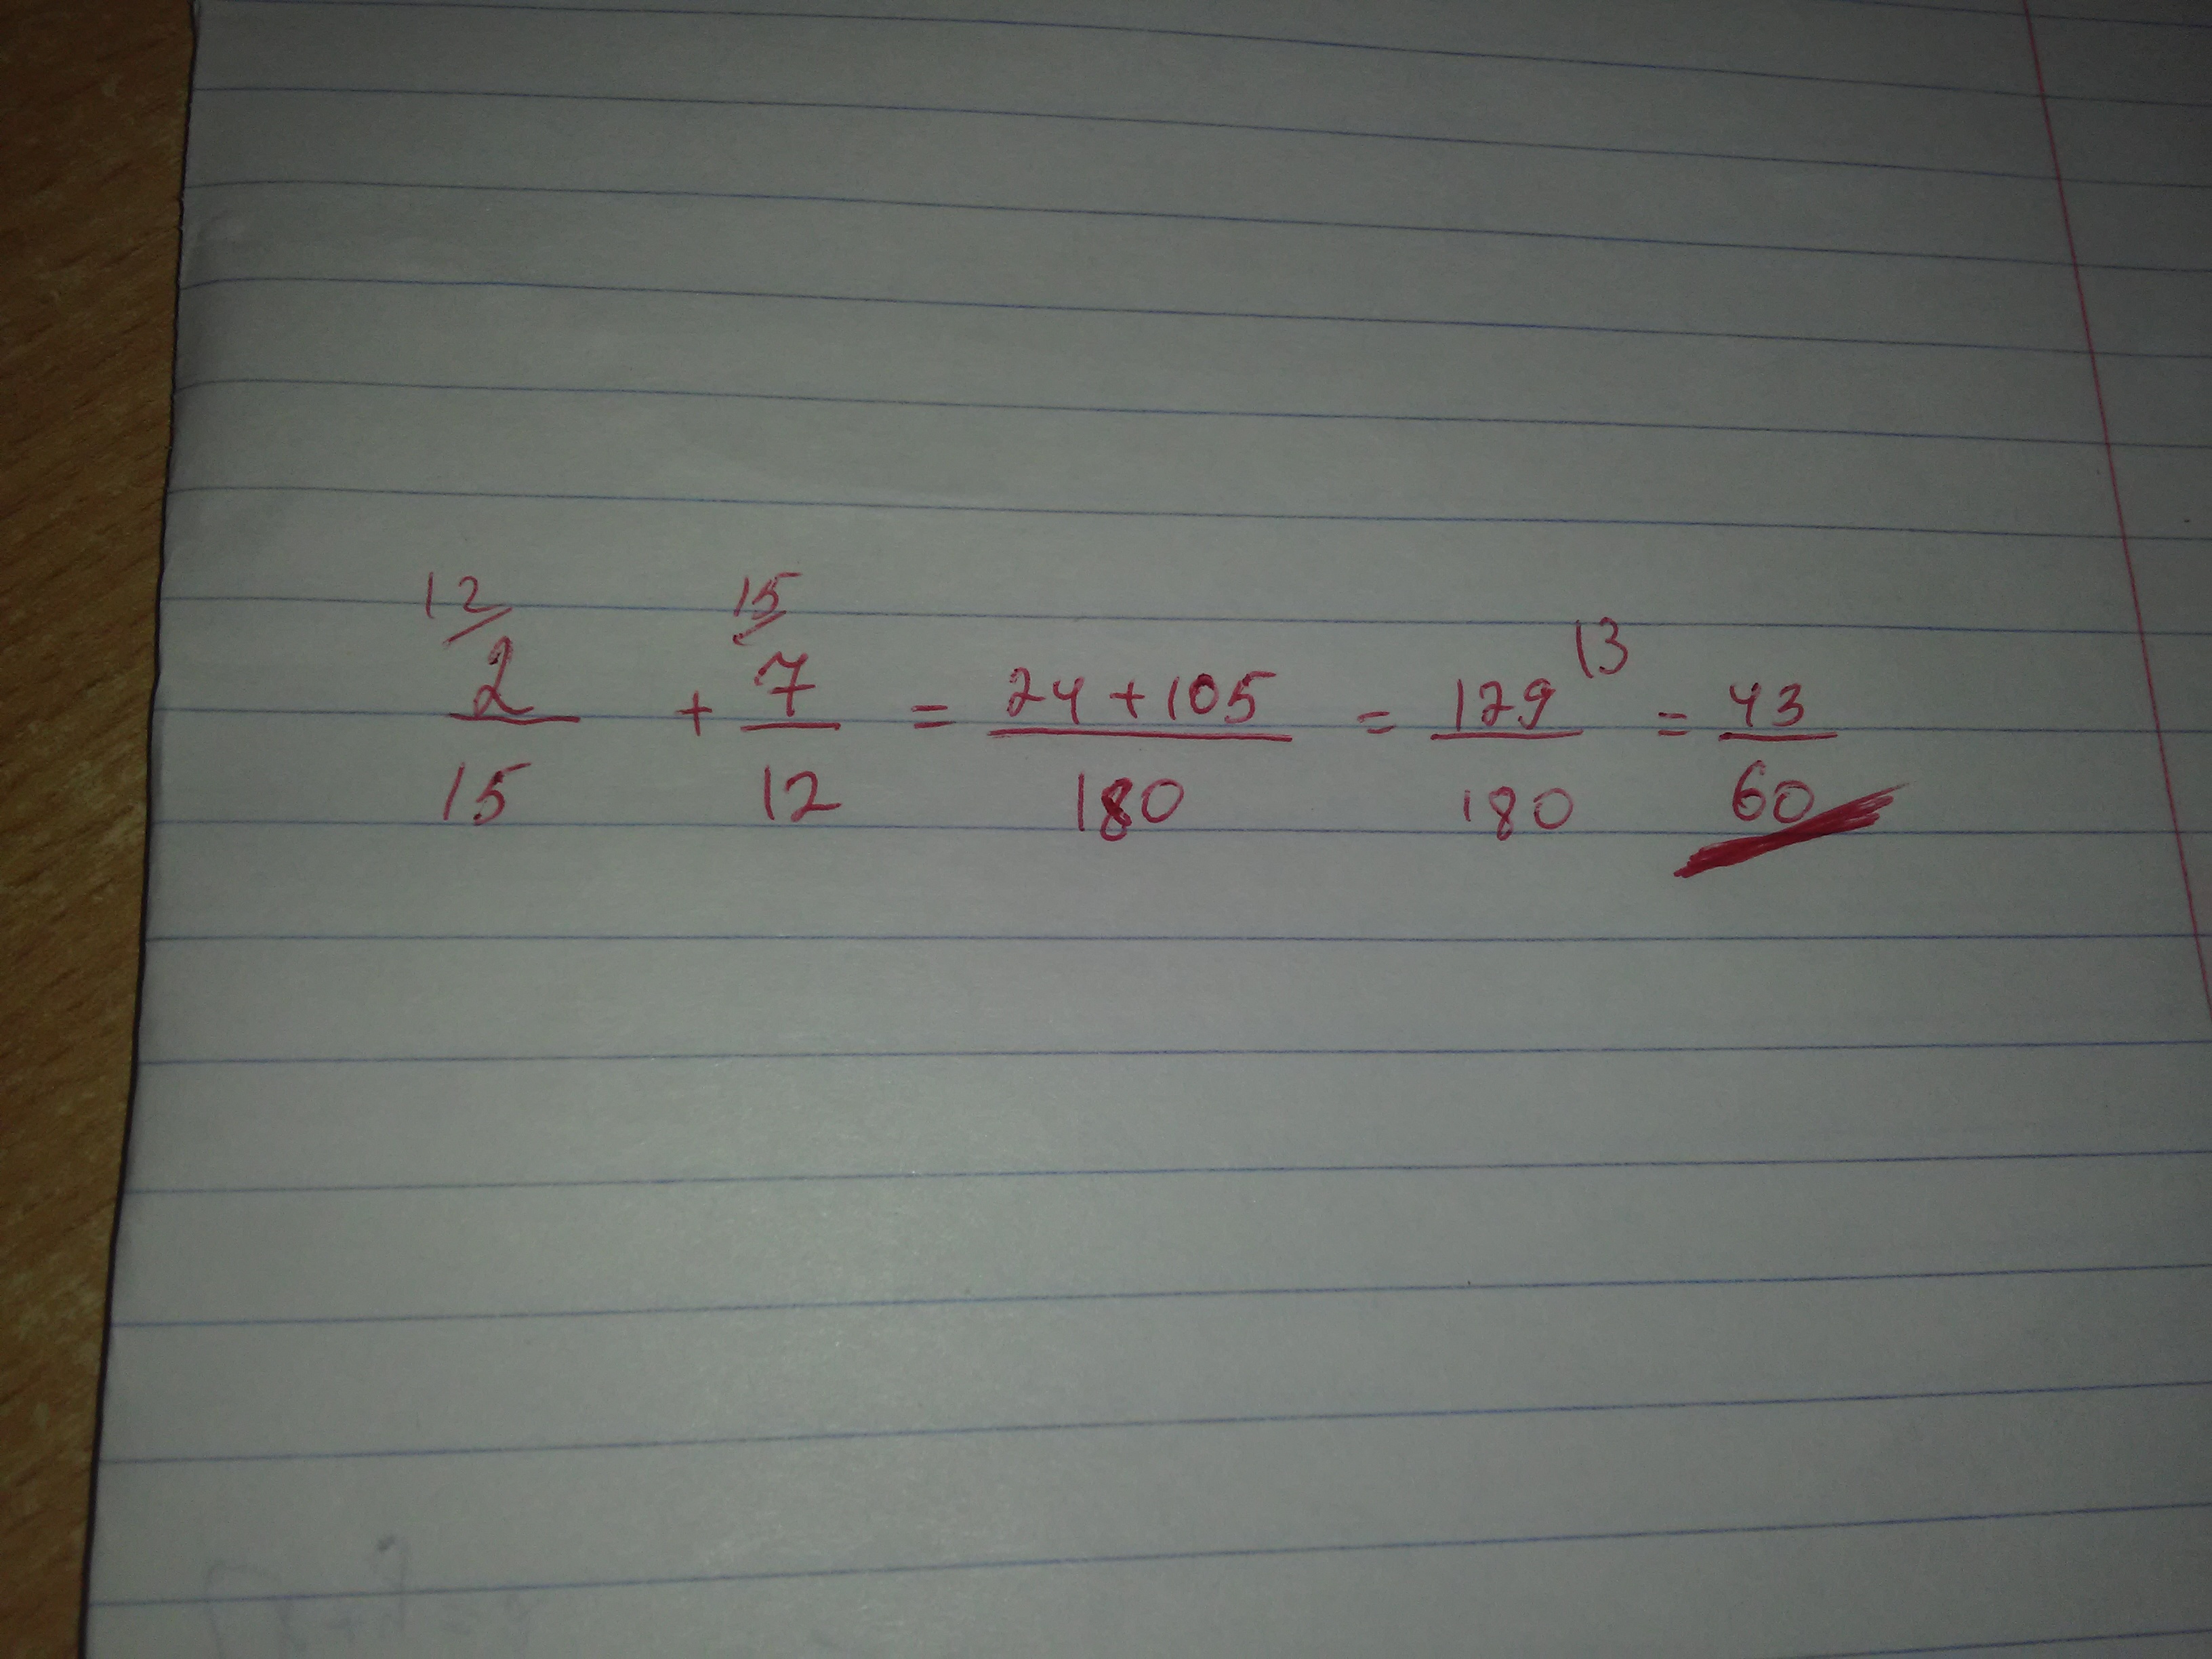 12/ 15/
2/15 + 7/12 = 24+105/180 = 129/180 |3 = 43/60